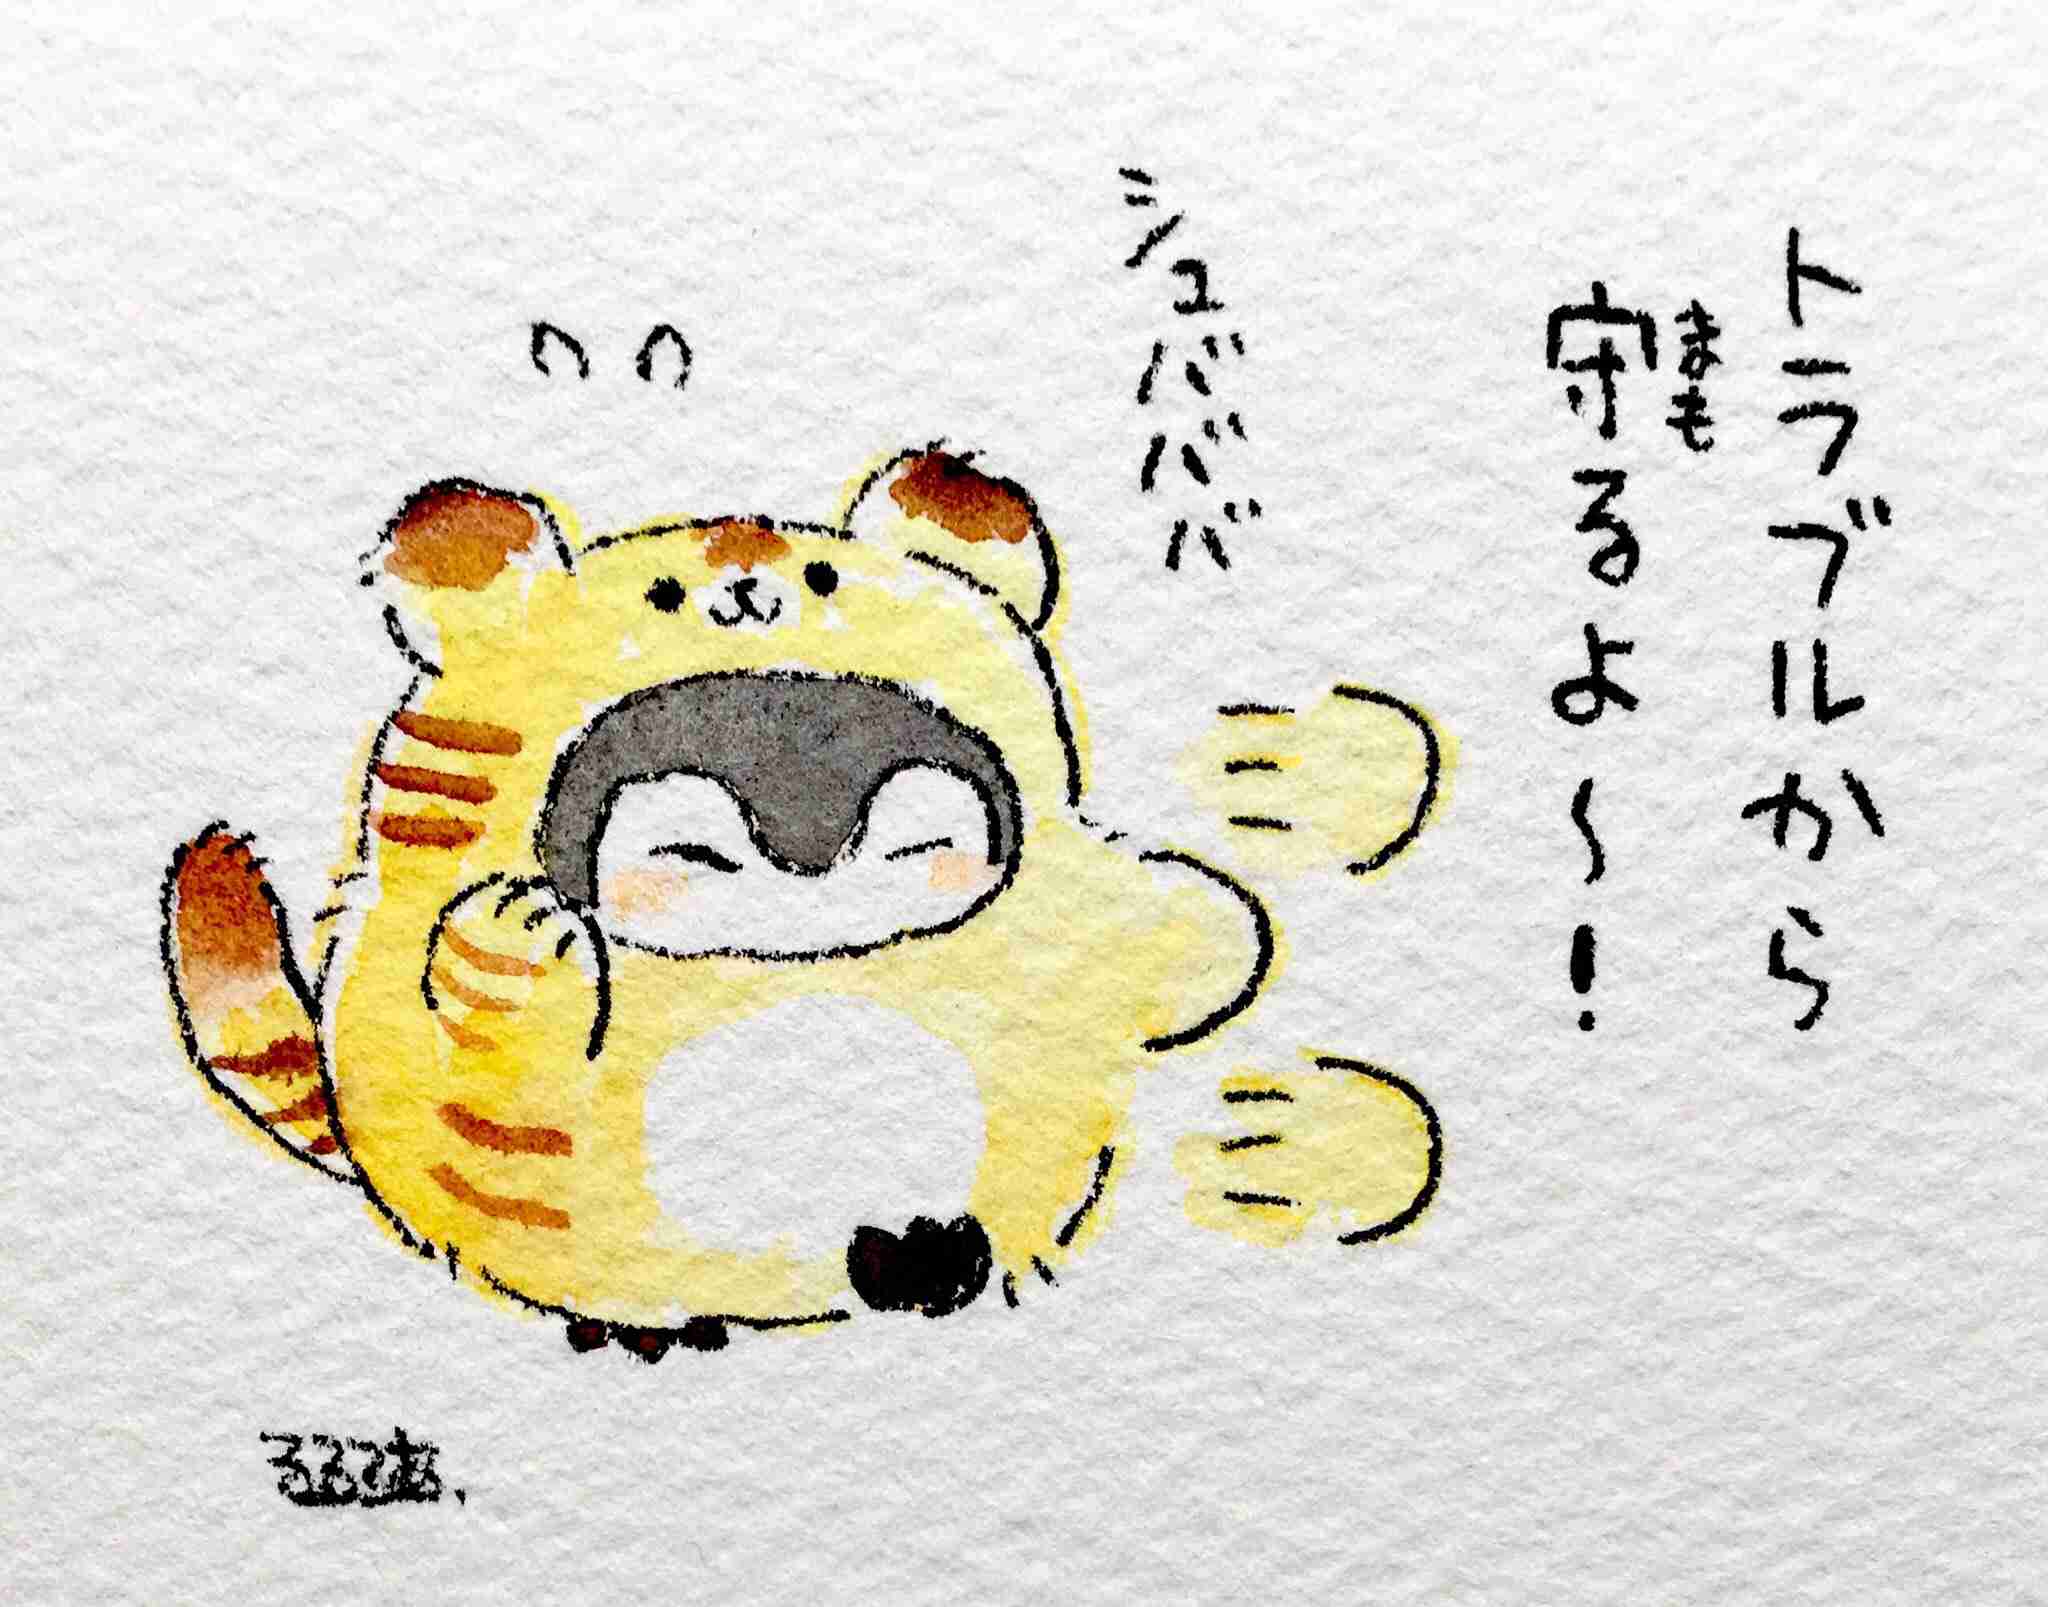 トラブルから
守るよ〜!
まも
シュババババ
るるてあ.